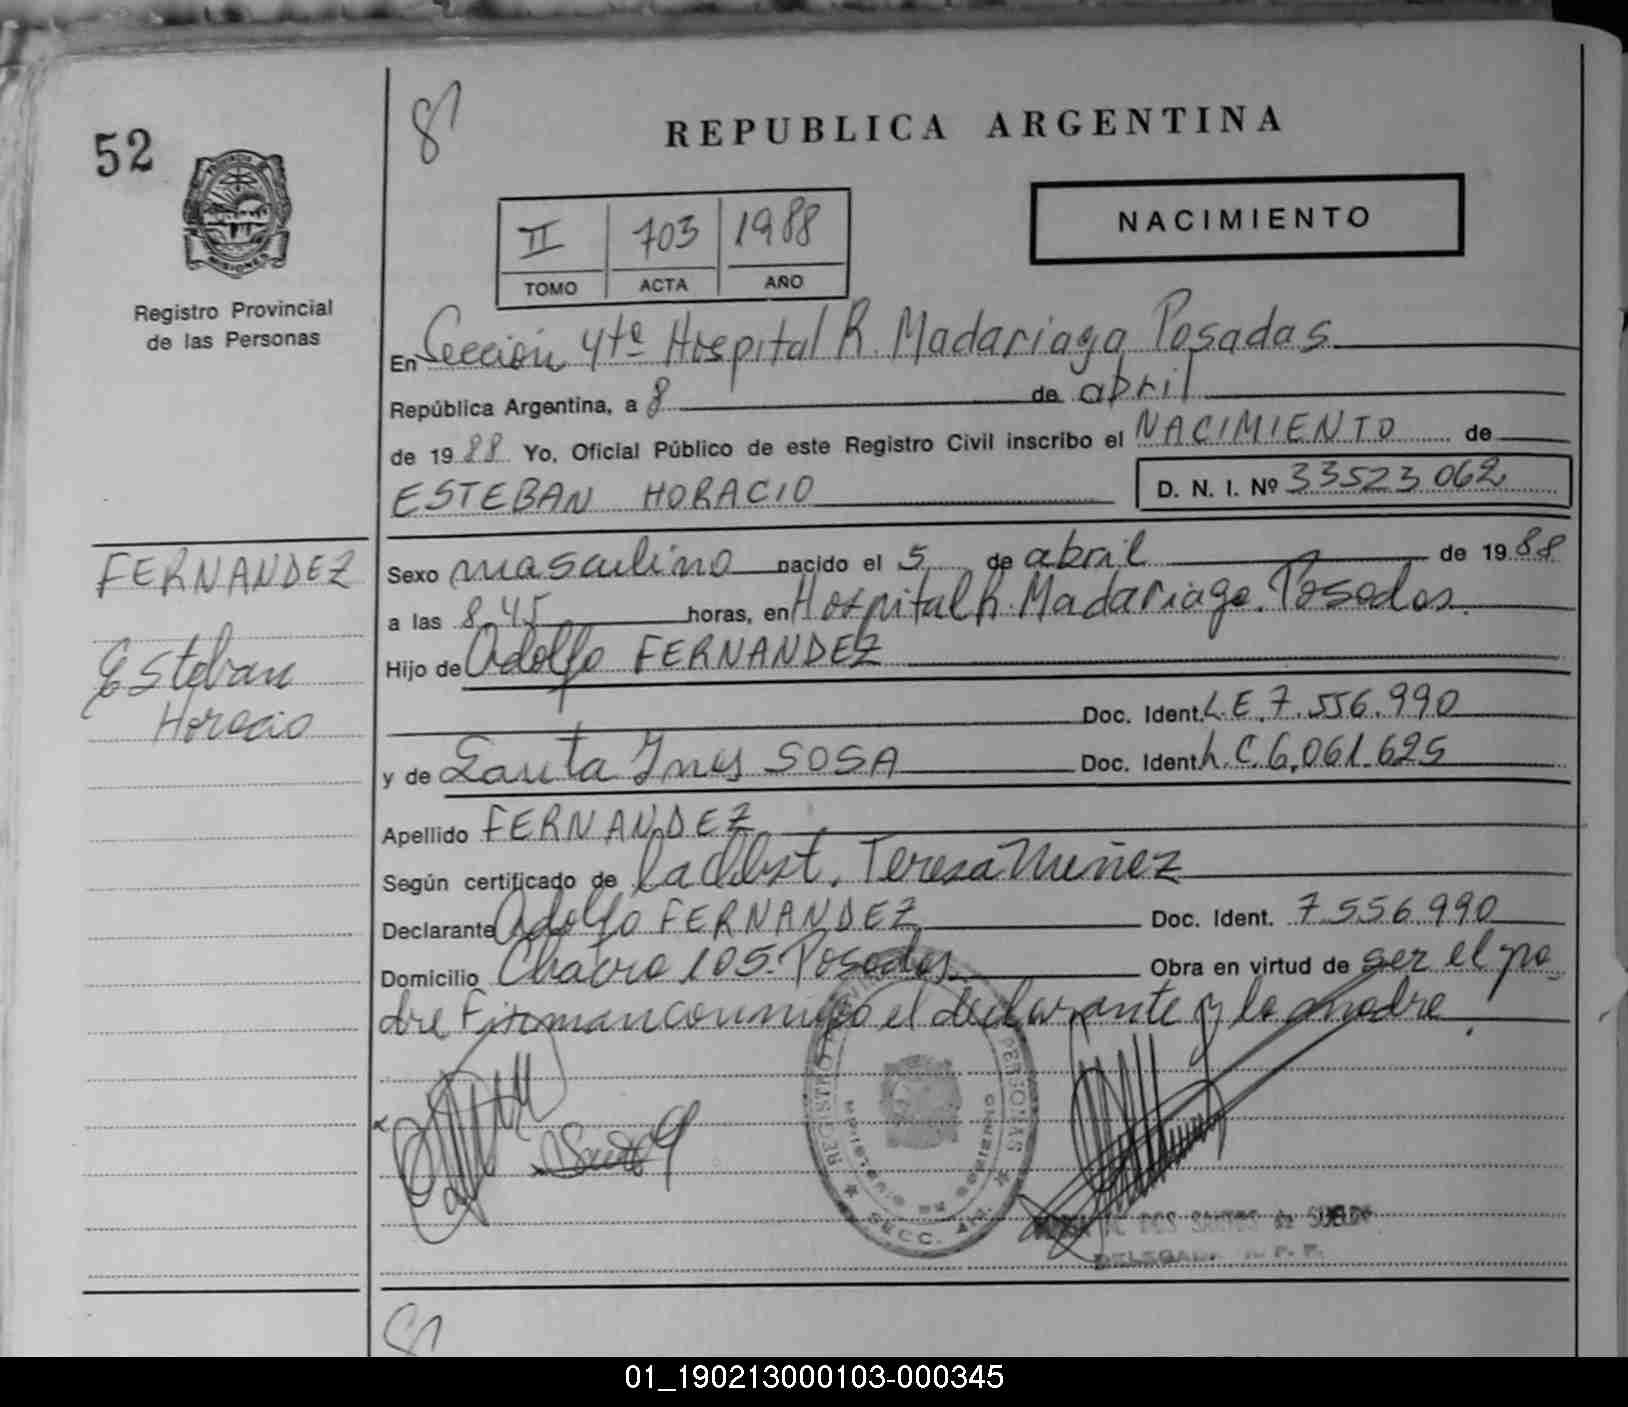 52
81
REPUBLICA ARGENTINA
PROVINCIA DE
MISIONES
Registro Provincial
de las Personas
II 703 1988
TOMO ACTA AÑO
NACIMIENTO
En Sección 4ta Hospital R. Madariaga Posadas
República Argentina, a 8 de abril
de 1988 Yo, Oficial Público de este Registro Civil inscribo el NACIMIENTO de
ESTEBAN HORACIO D. N. I. Nº 33523062
FERNANDEZ
Esteban
Horacio
Sexo masculino nacido el 5 de abril de 1988
a las 8,45 horas, en Hospital R. Madariaga. Posadas.
Hijo de Adolfo FERNANDEZ
Doc. Ident. L.E. 7.556.990
y de Santa Ines SOSA Doc. Ident. L.C. 6,061.625
Apellido FERNANDEZ
Según certificado de la Obst. Teresa Nuñez
Declarante Adolfo FERNANDEZ Doc. Ident. 7.556.990
Domicilio Chacra 105. Posadas Obra en virtud de ser el pa
dre Firman conmigo el declarante y la madre.
REGISTRO PERSONAS
SECC. 4ta.
DOS SANTOS de
DELEGADA R. P. P.
01_190213000103-000345